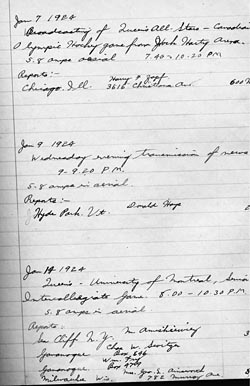 Jan 7, 1924
Broadcasting of Queens All-Stars - Canadian
Olympic Hockey game from Jock Harty Arena.
5.8 amps aerial 7.40-10.20 PM
Reports:-
Chicago. Ill. Harry F. 
3616 Christiana Ave 600 M
Jan 9. 1924
Wednesday evening transmission of news
9-9.20 P.M.
5.8 amps in aerial.
Reports:-
Hyde Park. Vt. Donald Hope
Jan 14 1924
Queens - University of Montreal, Senior
Intercollegiate Game. 8.00-10.30 PM
5.8 amps in aerial
Reports:-
Sea Cliff N.Y. M
Gananoque Chas W.
Box 646
Gananoque Wm.
Box
Milwaukee Wis. Mrs. Geo. S.
782 Ave